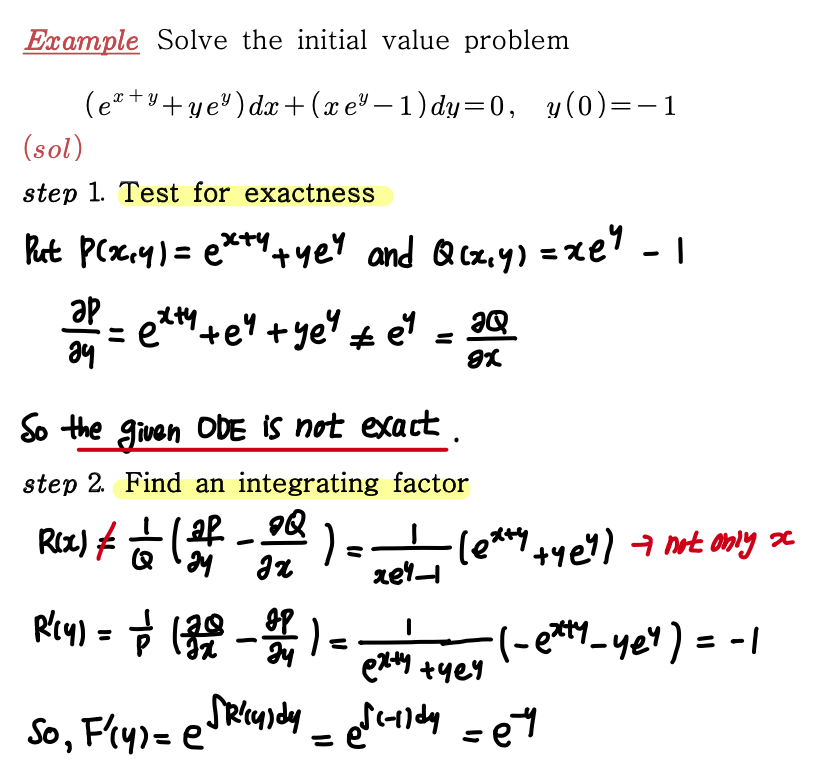 Example Solve the initial value problem
(e^{x+y}+ye^y)dx+(xe^y-1)dy=0, y(0)=-1
(sol)
step 1. Test for exactness
Put P(x,y)=e^{x+y}+ye^y and Q(x,y)=xe^y-1
∂P/∂y=e^{x+y}+e^y+ye^y≠e^y=∂Q/∂x
So the given ODE is not exact.
step 2. Find an integrating factor
R(x)≠1/Q(∂P/∂y-∂Q/∂x)=1/(xe^y-1)(e^{x+y}+ye^y) → not only x
R'(y)=1/P(∂Q/∂x-∂P/∂y)=1/(e^{x+y}+yey)(-e^{x+y}-ye^y)=-1
So, F'(y)=e^{∫R'(y)dy}=e^{∫(-1)dy}=e^{-y}